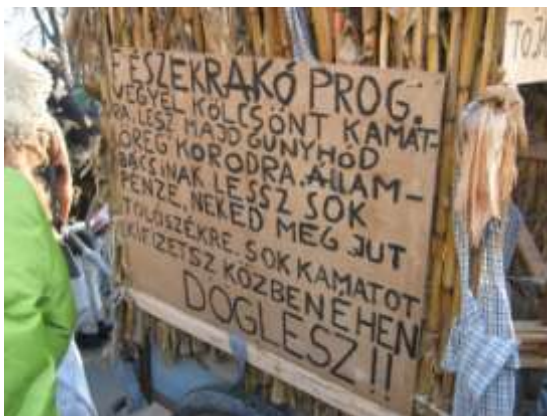 FÉSZEKRAKÓ PROG.
VEGYÉL KÖLCSÖNT KAMAT-
RA. LESZ MAJD GUNYHÓD
ÖREG KORODRA. ÁLLAM-
BÁCSINAK LESSZ SOK
PÉNZE, NEKED MEG JUT
TOLÓSZÉKRE SOK KAMATOT
KIFIZETSZ KÖZBEN ÉHEN
DÖGLESZ!!
TOJÁ